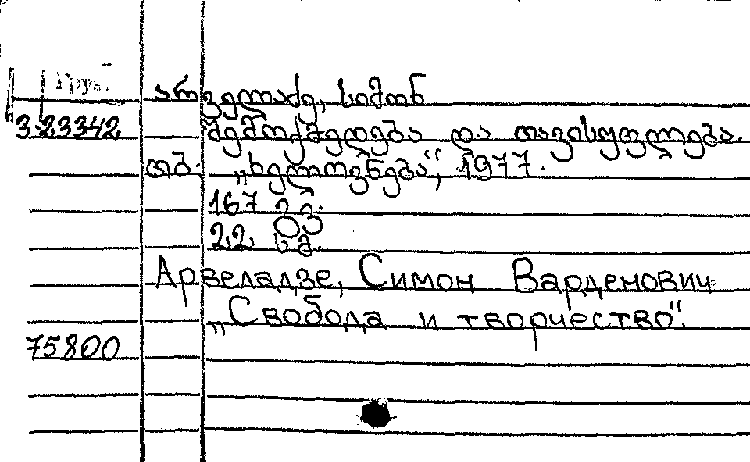 არველაძე, სიმონ
3.23342
შემოქმედება და თავისუფლება.
თბ. „ხელოვნება“, 1977.
167 გვ.
22 სმ.
Арвеладзе, Симон Варденович
„Свобода и творчество“.
75800